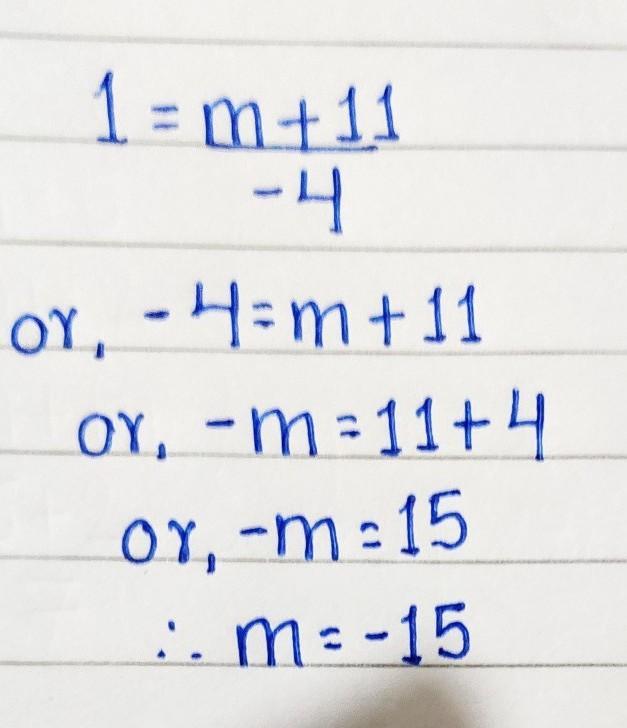 1 = m + 11
-4
or, - 4 = m + 11
or, - m = 11 + 4
or, -m = 15
∴ m = -15